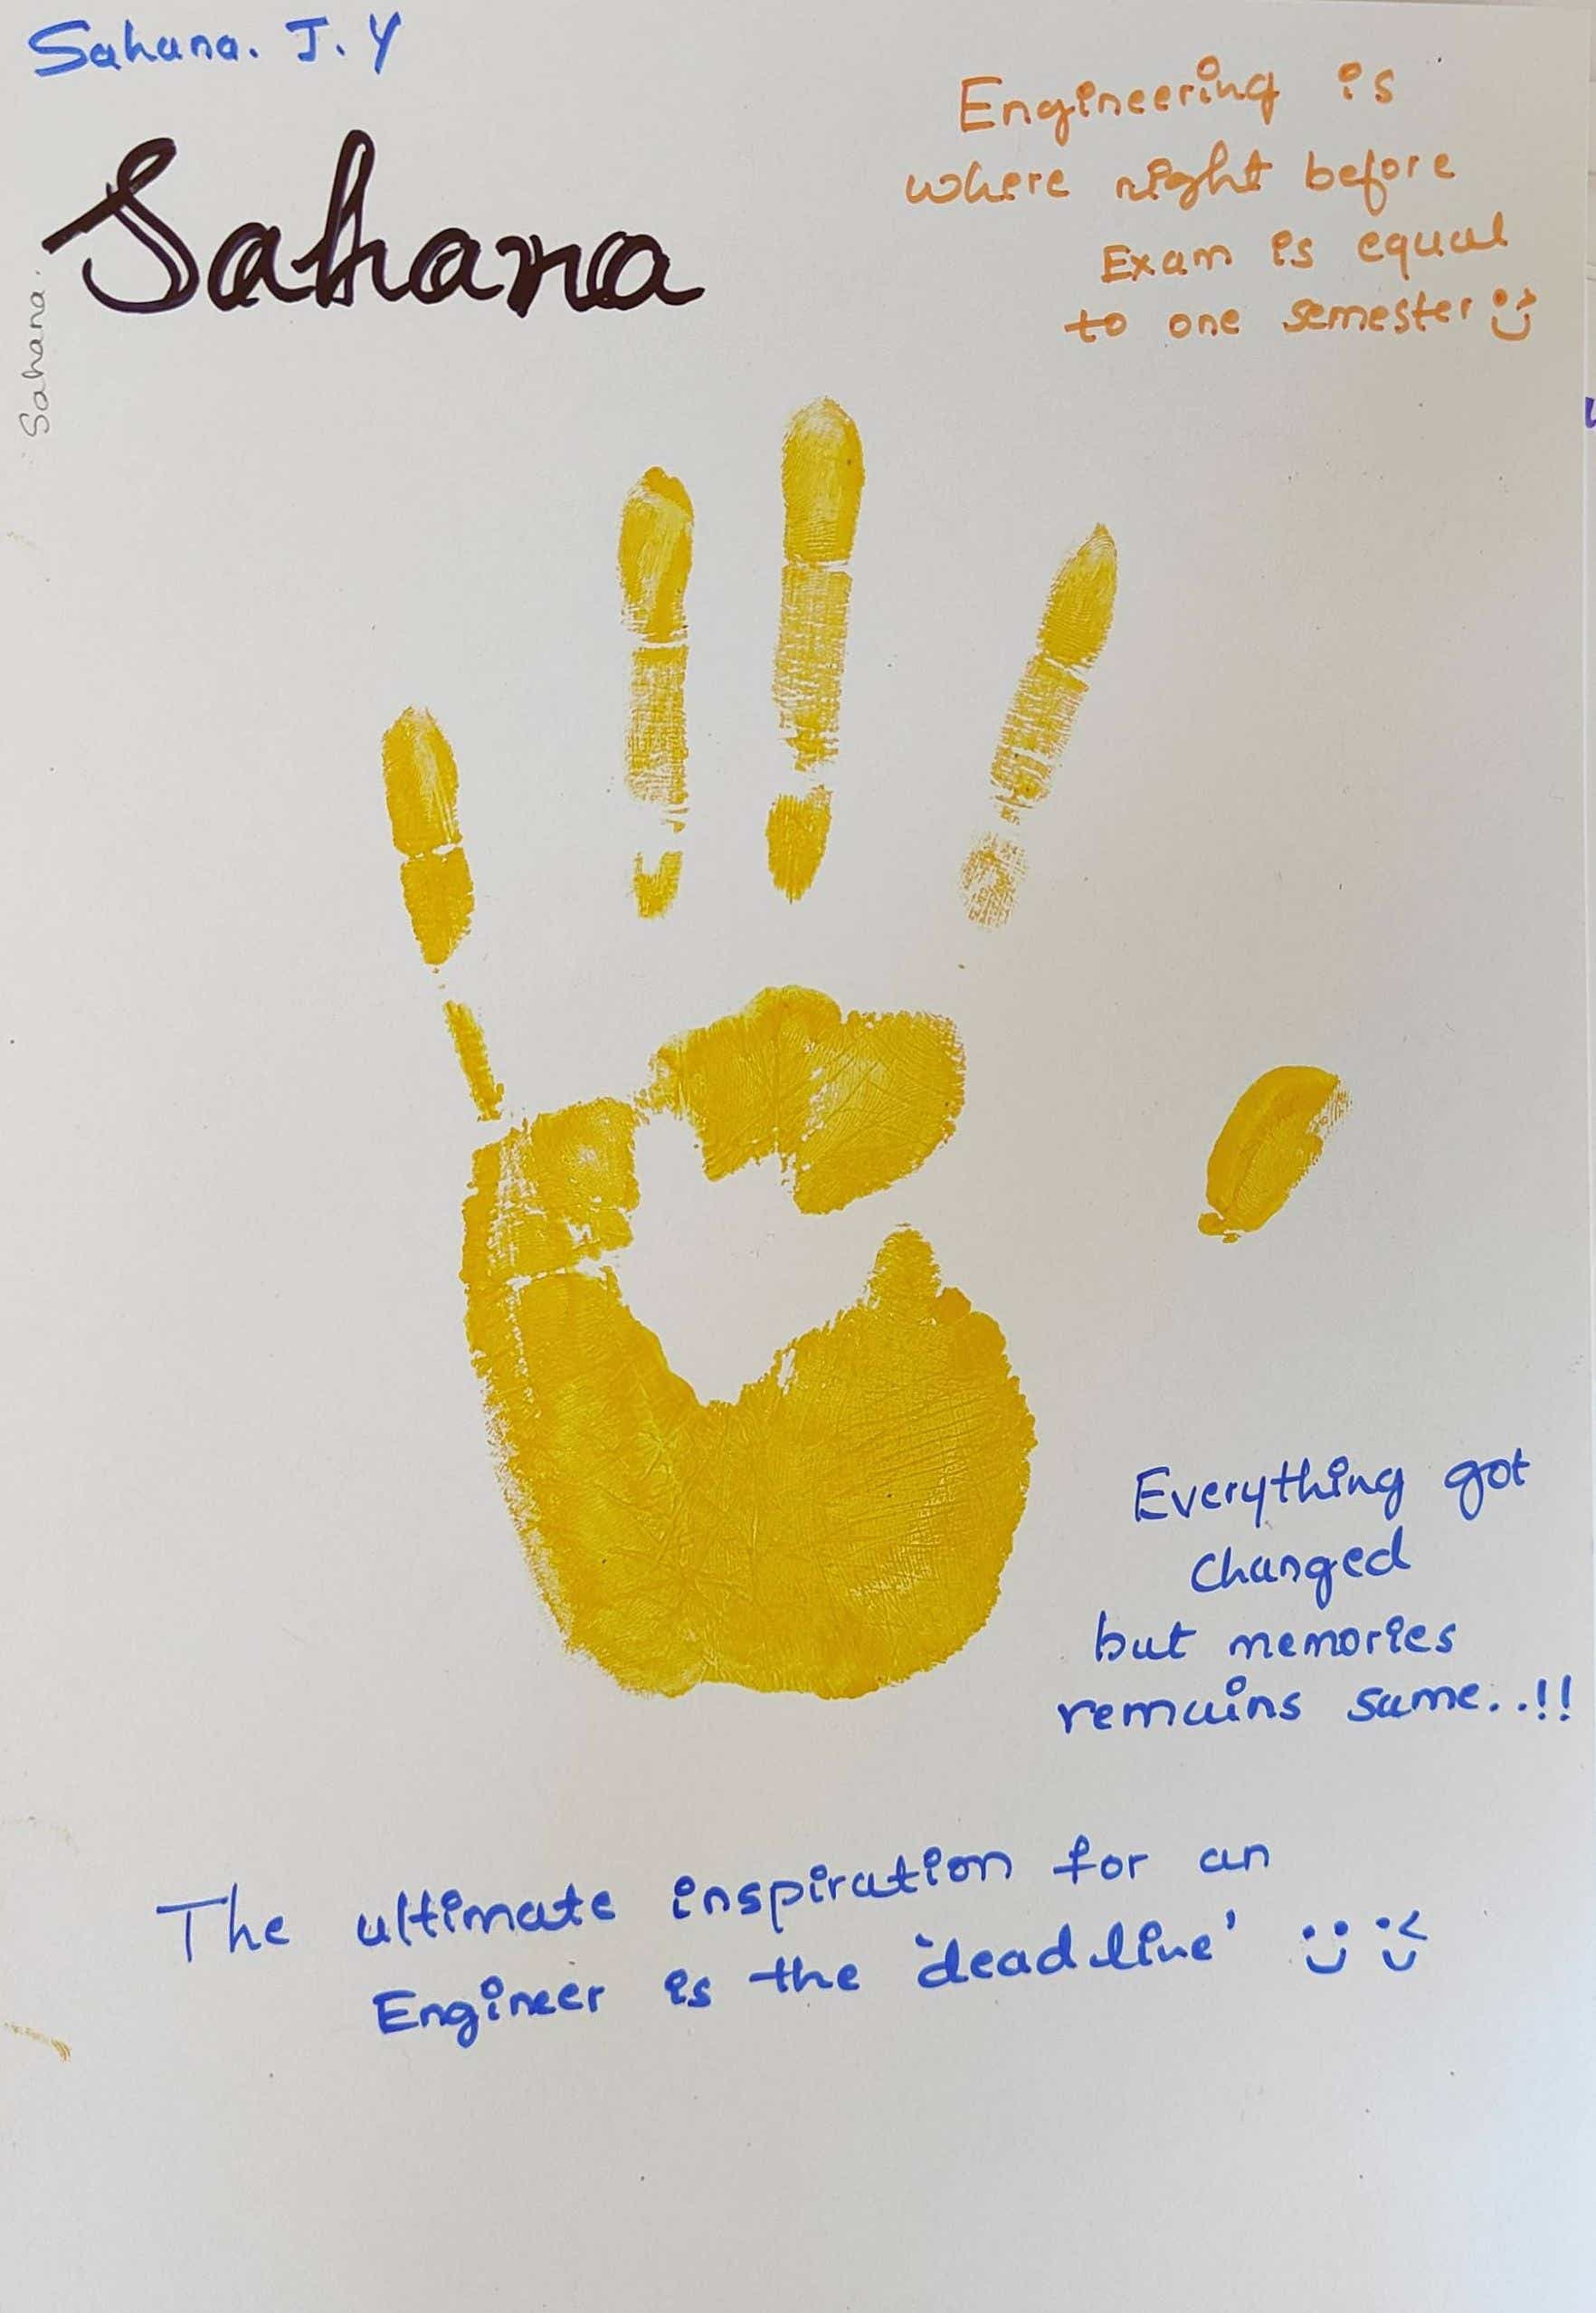 Sahana. J. Y
Sahana
Sahana.
Engineering is
where night before
Exam is equal
to one semester
Everything got
changed
but memories
remains same..!!
The ultimate inspiration for an
Engineer is the 'deadline'